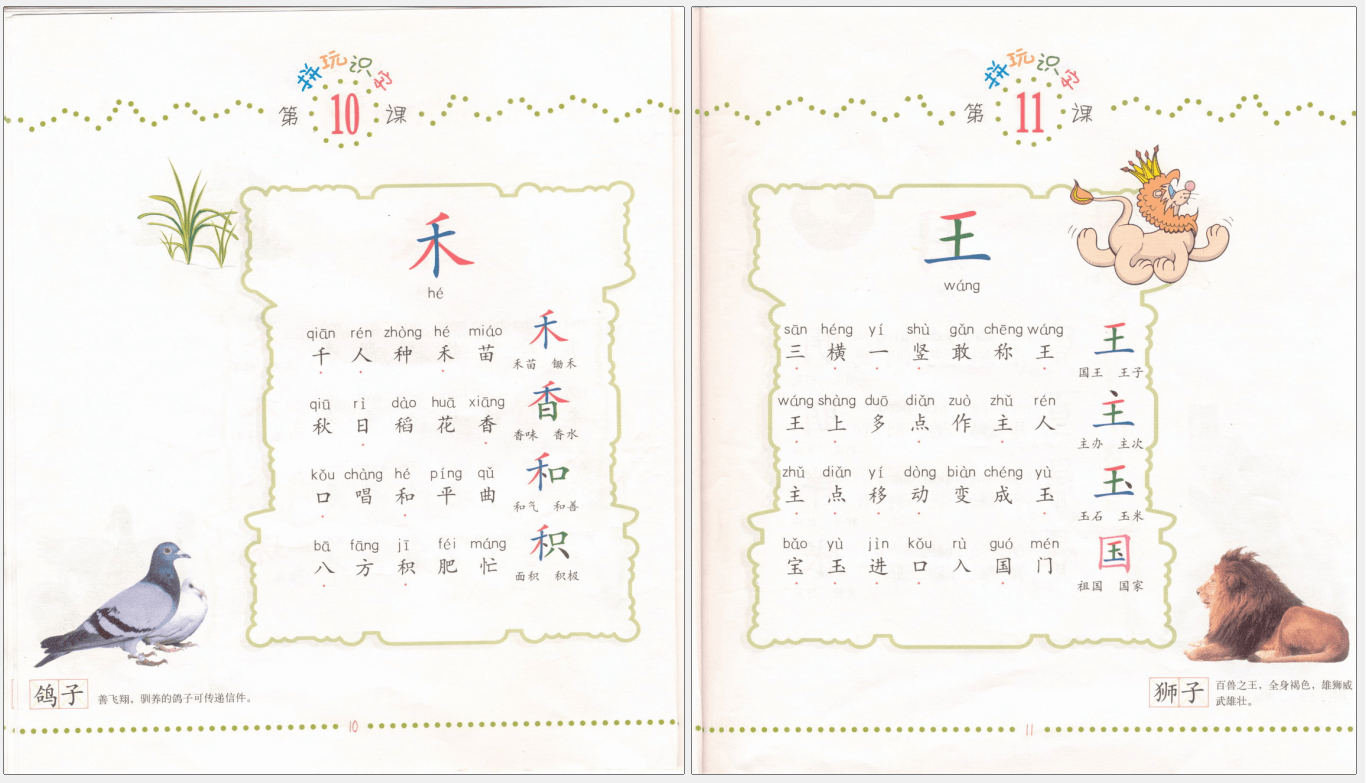 拼玩识字
第 10 课
禾
hé
qiān rén zhòng hé miáo
千 人 种 禾 苗
禾
禾苗 锄禾
qiū rì dào huā xiāng
秋 日 稻 花 香
香
香味 香水
kǒu chàng hé píng qǔ
口 唱 和 平 曲
和
和气 和善
bā fāng jī féi máng
八 方 积 肥 忙
积
面积 积极
鸽子 善飞翔，驯养的鸽子可传递信件。
10
拼玩识字
第 11 课
王
wáng
sān héng yí shù gǎn chēng wáng
三 横 一 竖 敢 称 王
王
国王 王子
wáng shàng duō diǎn zuò zhǔ rén
王 上 多 点 作 主 人
主
主办 主次
zhǔ diǎn yí dòng biàn chéng yù
主 点 移 动 变 成 玉
玉
玉石 玉米
bǎo yù jìn kǒu rù guó mén
宝 玉 进 口 入 国 门
国
祖国 国家
狮子 百兽之王，全身褐色，雄狮威
武雄壮。
11